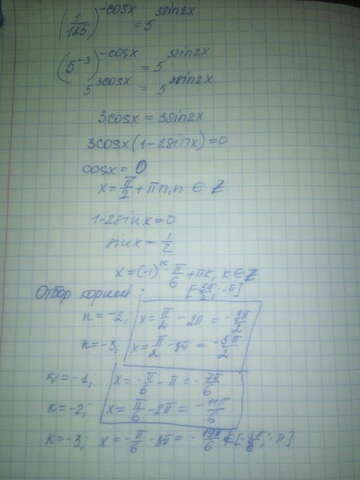 (1/125)^-cosx = 5^3sin2x
(5^-3)^-cosx = 5^3sin2x
5^3cosx = 5^3sin2x
3cosx = 3sin2x
3cosx(1-2sinx)=0
cosx = 0
x = π/2 + πn, n ∈ Z
1-2sinx=0
sinx = 1/2
x = (-1)^k π/6 + πk, k ∈ Z
Отбор корней
n = -2, x = π/2 - 2π = -3π/2
n = -3, x = π/2 - 3π = -5π/2
k = -1, x = -π/6 - π = -7π/6
k = -2; x = π/6 - 2π = -11π/6
k = -3; x = -π/6 - 3π = -19π/6